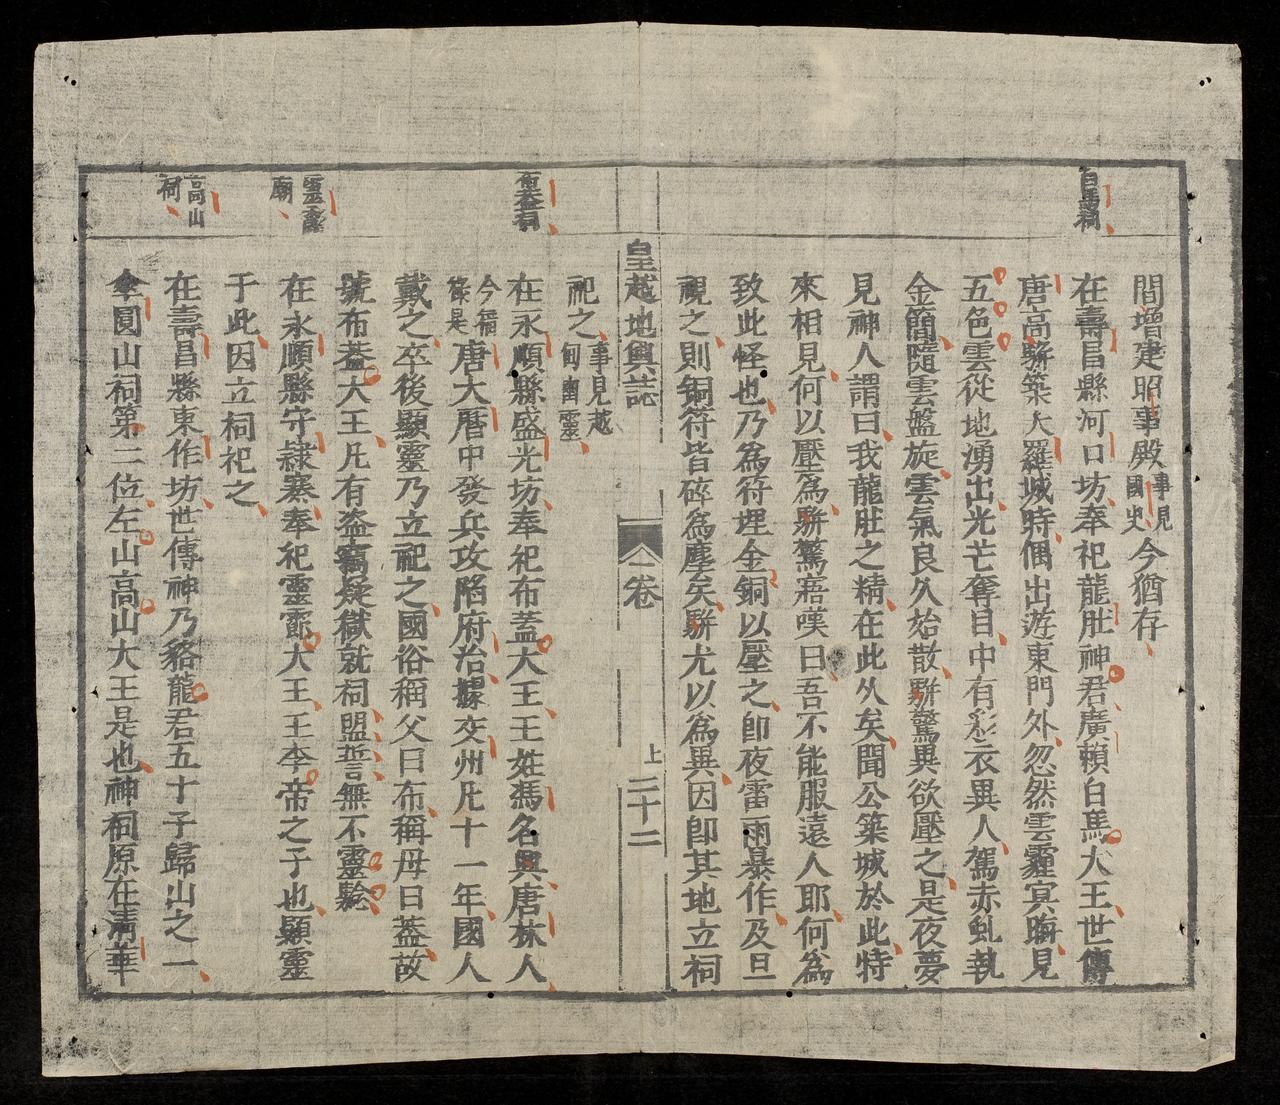 白馬祠
間增建昭事殿事見國史今猶存
在壽昌縣河口坊奉祀龍肚神君廣賴白馬大王世傳
唐高駢築大羅城時偶出遊東門外忽然雲霾冥晦見
五色雲從地湧出光芒奪目中有彩衣異人駕赤虬執
金簡隨雲盤旋雲氣良久始散駢驚異欲壓之是夜夢
見神人謂曰我龍肚之精在此久矣聞公築城於此特
來相見何以壓為駢驚寤嘆曰吾不能服遠人耶何為
致此怪也乃為符埋金銅以壓之卽夜雷雨暴作及旦
視之則銅符皆碎為塵矣駢尤以為異因卽其地立祠
皇越地輿誌
卷一
上
二十二
布蓋祠
祀之事見越甸幽靈
在永順縣盛光坊奉祀布蓋大王王姓馮名興唐林人
今福祿是唐大曆中發兵攻陷府治據交州凡十一年國人
戴之卒後顯靈乃立祀之國俗稱父曰布稱母曰蓋故
號布蓋大王凡有盜竊疑獄就祠盟誓無不靈驗
靈廟
在永順縣守隸寨奉祀靈大王王李帝之子也顯靈
于此因立祠祀之
高山祠
在壽昌縣東作坊世傳神乃貉龍君五十子歸山之一
傘圓山祠第二位左山高山大王是也神祠原在清華